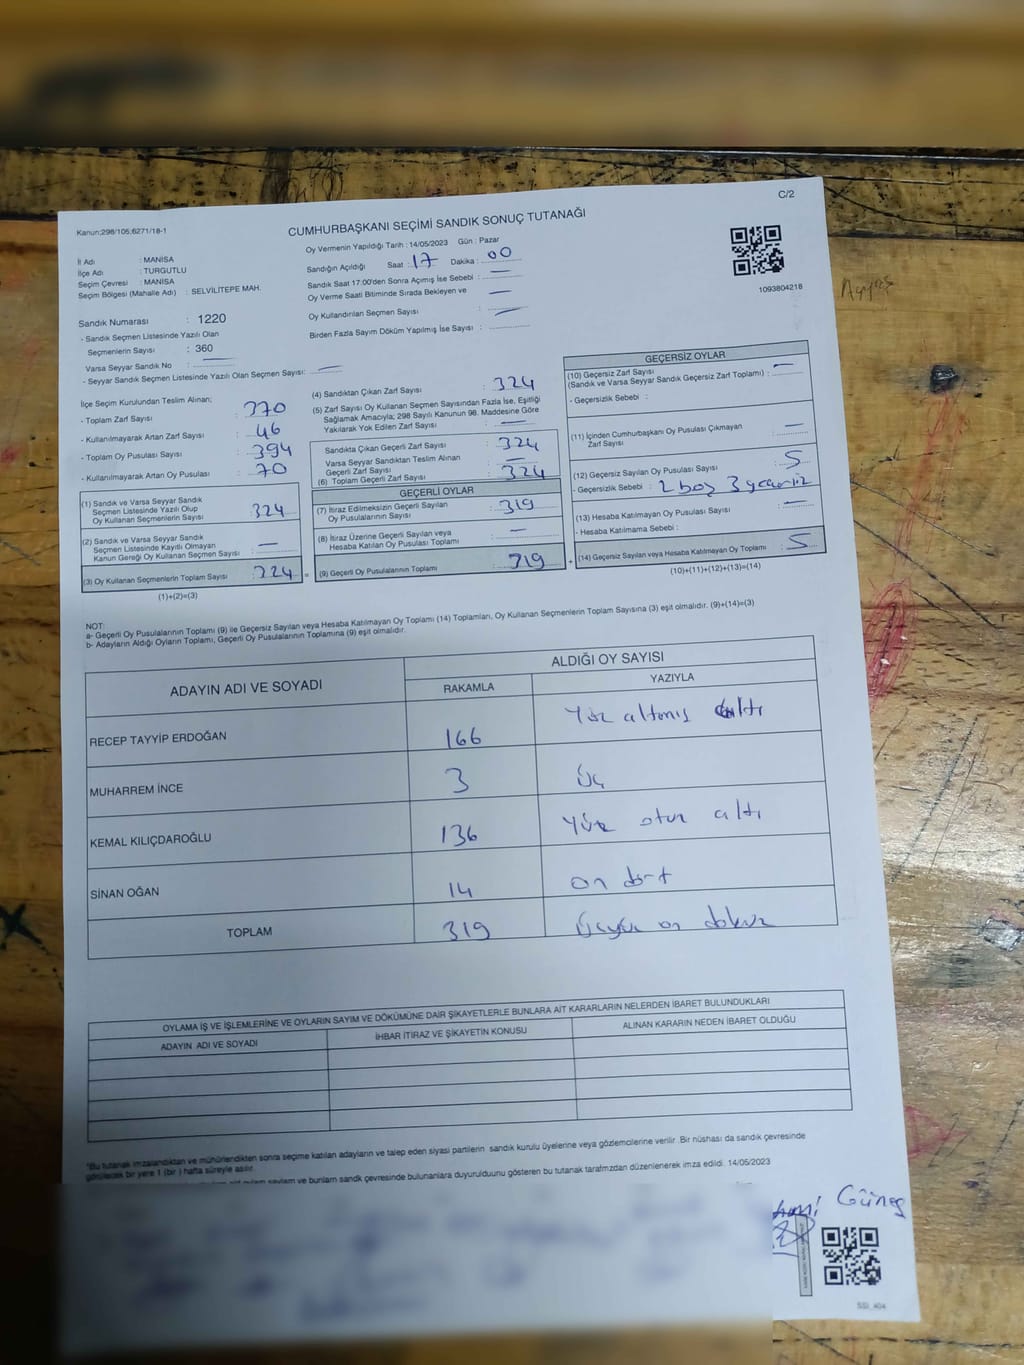 C/2
Kanun;298/105;6271/18-1
CUMHURBAŞKANI SEÇİMİ SANDIK SONUÇ TUTANAĞI
Oy Vermenin Yapıldığı Tarih : 14/05/2023 Gün : Pazar
İl Adı : MANİSA
İlçe Adı : TURGUTLU
Seçim Çevresi : MANİSA
Seçim Bölgesi (Mahalle Adı) : SELVİLİTEPE MAH.
Sandığın Açıldığı Saat : 17 Dakika : 00
Sandık Saat 17:00'den Sonra Açımış İse Sebebi : —
Oy Verme Saati Bitiminde Sırada Bekleyen ve —
Oy Kullandırılan Seçmen Sayısı : —
Birden Fazla Sayım Döküm Yapılmış İse Sayısı :
1093804218
Sandık Numarası : 1220
- Sandık Seçmen Listesinde Yazılı Olan
Seçmenlerin Sayısı : 360
Varsa Seyyar Sandık No : —
- Seyyar Sandık Seçmen Listesinde Yazılı Olan Seçmen Sayısı: —
İlçe Seçim Kurulundan Teslim Alınan;
- Toplam Zarf Sayısı : 370
- Kullanılmayarak Artan Zarf Sayısı : 46
- Toplam Oy Pusulası Sayısı : 394
- Kullanılmayarak Artan Oy Pusulası : 70
(1) Sandık ve Varsa Seyyar Sandık
Seçmen Listesinde Yazılı Olup
Oy Kullanan Seçmenlerin Sayısı : 324
(2) Sandık ve Varsa Seyyar Sandık
Seçmen Listesinde Kayıtlı Olmayan
Kanun Gereği Oy Kullanan Seçmen Sayısı : —
(3) Oy Kullanan Seçmenlerin Toplam Sayısı : 324 =
(1)+(2)=(3)
(4) Sandıktan Çıkan Zarf Sayısı : 324
(5) Zarf Sayısı Oy Kullanan Seçmen Sayısından Fazla İse, Eşitliği
Sağlamak Amacıyla; 298 Sayılı Kanunun 98. Maddesine Göre
Yakılarak Yok Edilen Zarf Sayısı : —
Sandıkta Çıkan Geçerli Zarf Sayısı : 324
Varsa Seyyar Sandıktan Teslim Alınan
Geçerli Zarf Sayısı : —
(6) Toplam Geçerli Zarf Sayısı : 324
GEÇERLİ OYLAR
(7) İtiraz Edilmeksizin Geçerli Sayılan
Oy Pusulalarının Sayısı : 319
(8) İtiraz Üzerine Geçerli Sayılan veya
Hesaba Katılan Oy Pusulası Toplamı : —
(9) Geçerli Oy Pusulalarının Toplamı : 319 +
GEÇERSİZ OYLAR
(10) Geçersiz Zarf Sayısı
(Sandık ve Varsa Seyyar Sandık Geçersiz Zarf Toplamı) : —
- Geçersizlik Sebebi :
(11) İçinden Cumhurbaşkanı Oy Pusulası Çıkmayan
Zarf Sayısı : —
(12) Geçersiz Sayılan Oy Pusulası Sayısı : 5
- Geçersizlik Sebebi : 2 boş 3 geçersiz
(13) Hesaba Katılmayan Oy Pusulası Sayısı : —
- Hesaba Katılmama Sebebi :
(14) Geçersiz Sayılan veya Hesaba Katılmayan Oy Toplamı : 5
(10)+(11)+(12)+(13)=(14)
NOT:
a- Geçerli Oy Pusulalarının Toplamı (9) ile Geçersiz Sayılan veya Hesaba Katılmayan Oy Toplamı (14) Toplamları, Oy Kullanan Seçmenlerin Toplam Sayısına (3) eşit olmalıdır. (9)+(14)=(3)
b- Adayların Aldığı Oyların Toplamı, Geçerli Oy Pusulalarının Toplamına (9) eşit olmalıdır.
ADAYIN ADI VE SOYADI ALDIĞI OY SAYISI
RAKAMLA YAZIYLA
RECEP TAYYİP ERDOĞAN 166 Yüz altmış altı
MUHARREM İNCE 3 üç
KEMAL KILIÇDAROĞLU 136 Yüz otuz altı
SİNAN OĞAN 14 on dört
TOPLAM 319 üçyüz on dokuz
OYLAMA İŞ VE İŞLEMLERİNE VE OYLARIN SAYIM VE DÖKÜMÜNE DAİR ŞİKAYETLERLE BUNLARA AİT KARARLARIN NELERDEN İBARET BULUNDUKLARI
ADAYIN ADI VE SOYADI İHBAR İTİRAZ VE ŞİKAYETİN KONUSU ALINAN KARARIN NEDEN İBARET OLDUĞU
*Bu tutanak imzalandıktan ve mühürlendikten sonra seçime katılan adayların ve talep eden siyasi partilerin sandık kurulu üyelerine veya gözlemcilerine verilir. Bir nüshası da sandık çevresinde
görülecek bir yere 1 (bir) hafta süreyle asılır.
sayım ve bunların sandk çevresinde bulunanlara duyurulduunu gösteren bu tutanak tarafmzdan düzenlenerek imza edildi. 14/05/2023
Güneş
SSI_404